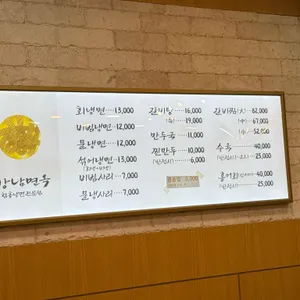 강남면옥
회냉면 13,000
비빔냉면 12,000
물냉면 12,000
섞어냉면 13,000
비빔사리 7,000
물냉사리 7,000
갈비탕 16,000
(특) 19,000
만두국 11,000
찐만두 10,000
(반접시)
갈비찜(大) 82,000
(中) 67,000
(小) 52,000
수육 40,000
25,000
홍어회 40,000
(반접시) 25,000